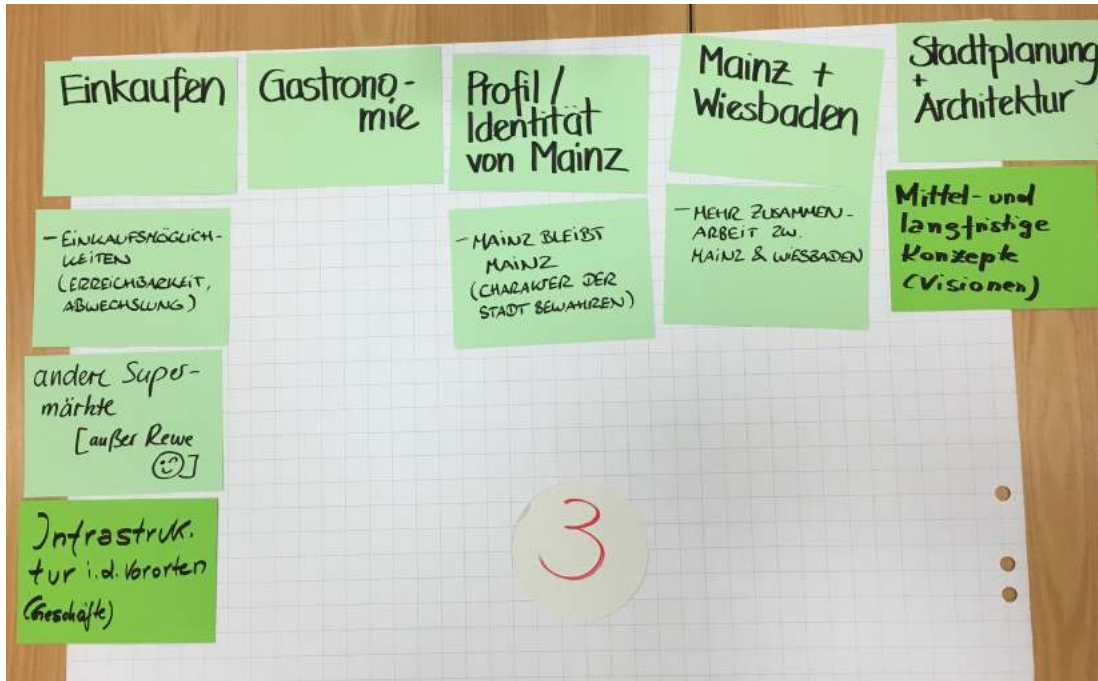 Einkaufen
- EINKAUFSMÖGLICH-
KEITEN
(ERREICHBARKEIT,
ABWECHSLUNG)
andere Super-
märkte
[außer Rewe
]
Infrastruk.
tur i.d. Vororten
(Geschäfte)
Gastrono-
mie
Profil /
Identität
von Mainz
- MAINZ BLEIBT
MAINZ
(CHARAKTER DER
STADT BEWAHREN)
Mainz +
Wiesbaden
- MEHR ZUSAMMEN-
ARBEIT ZW.
MAINZ & WIESBADEN
Stadtplanung
+
Architektur
Mittel- und
langfristige
Konzepte
(Visionen)
3